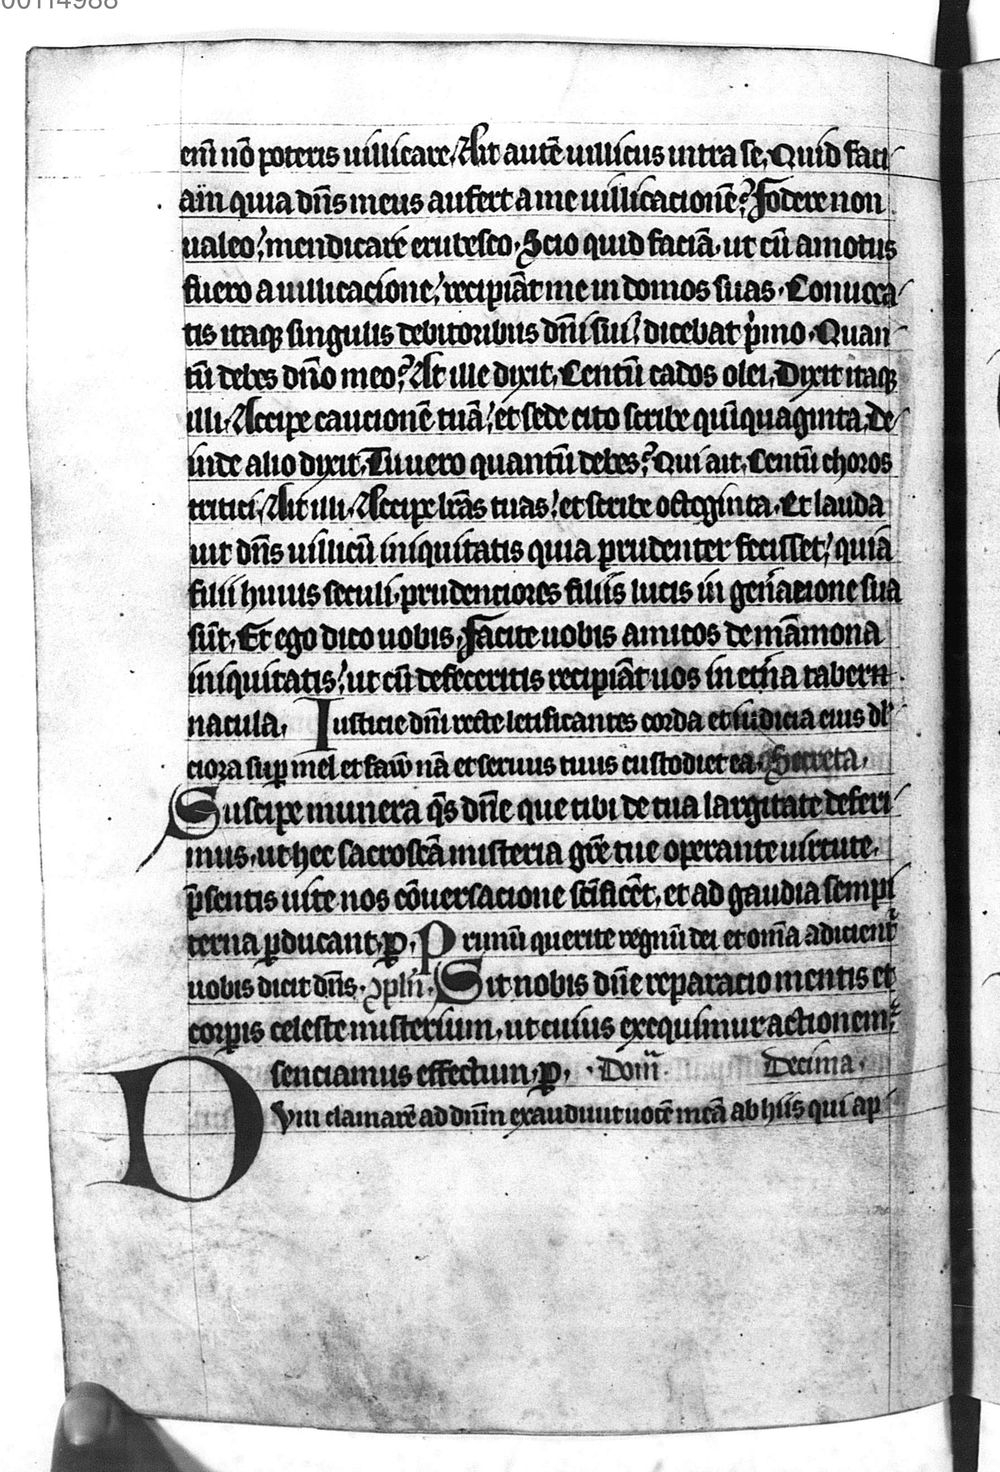 00114988
eni nō poteris uillicare. Ait autē uillicus intra se. Quid faci
am quia dn̄s meus aufert a me uillicacionē? Fodere non
ualeo. mendicare erubesco. Scio quid faciā. ut cū amotus
fuero a uillicacione. recipiāt me in domos suas. Conuoca
tis itaq singulis debitoribus dn̄i sui. dicebat pͥmo. Quan
tū debes dn̄o meo? At ille dixit. Centū cados olei. Dixit itaq
illi. Accipe caucionē tuā. et sede cito scribe quīquaginta. De
inde alio dixit. Tu uero quantū debes? Qui ait. Centū choros
tritici. Ait illi. Accipe lr̄as tuas. et scribe octoginta. Et lauda
uit dn̄s uillicū iniquitatis quia prudenter fecisset. quia
filii huius seculi. prudenciores filiis lucis in gen̄acione sua
sūt. Et ego dico uobis. facite uobis amicos de māmona
iniquitatis. ut cū defeceritis recipiāt uos in et̄na taber
nacula. Iusticie dn̄i recte letificantes corda et iudicia eius dl'
ciora suꝑ mel et fauū nā et seruus tuus custodiet ea. Secreta.
Suscipe munera qs̄ dn̄e que tibi de tua largitate deferi
mus. ut hec sacroscā misteria gr̄e tue operante uirtute.
p̄sentis uite nos cōuersacione sc̄ificēt. et ad gaudia sempi
terna ꝑducant. ꝑ. Primū querite regnū dei et om̄ia adicient᷑
uobis dicit dn̄s. 9pln̄. Sit nobis dn̄e reparacio mentis et
corꝑis celeste misterium. ut cuius exequimur actionem.
senciamus effectum. ꝑ. Dom̄. Decima.
Dvm clamarē ad dnm̄ exaudiuit uocē meā ab hiis qui ap